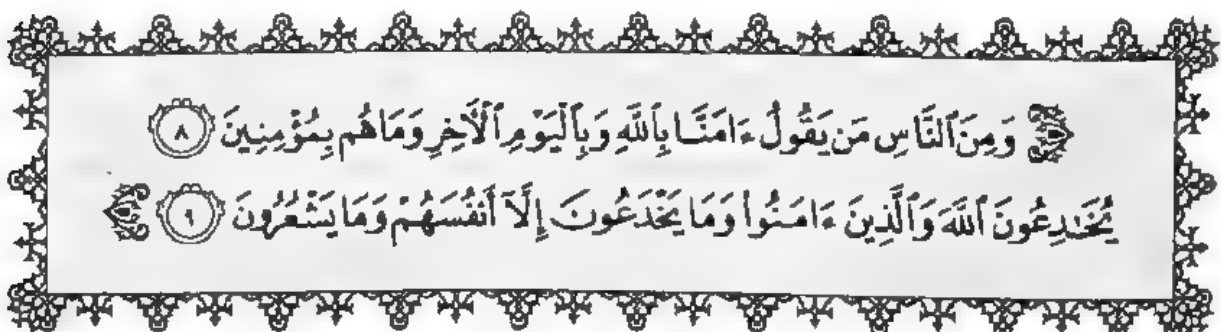 وَمِنَ ٱلنَّاسِ مَن يَقُولُ ءَامَنَّا بِٱللَّهِ وَبِٱلْيَوْمِ ٱلْأَخِرِ وَمَا هُم بِمُؤْمِنِينَ ٨
يُخَٰدِعُونَ ٱللَّهَ وَٱلَّذِينَ ءَامَنُوا۟ وَمَا يَخْدَعُونَ إِلَّآ أَنفُسَهُمْ وَمَا يَشْعُرُونَ ٩